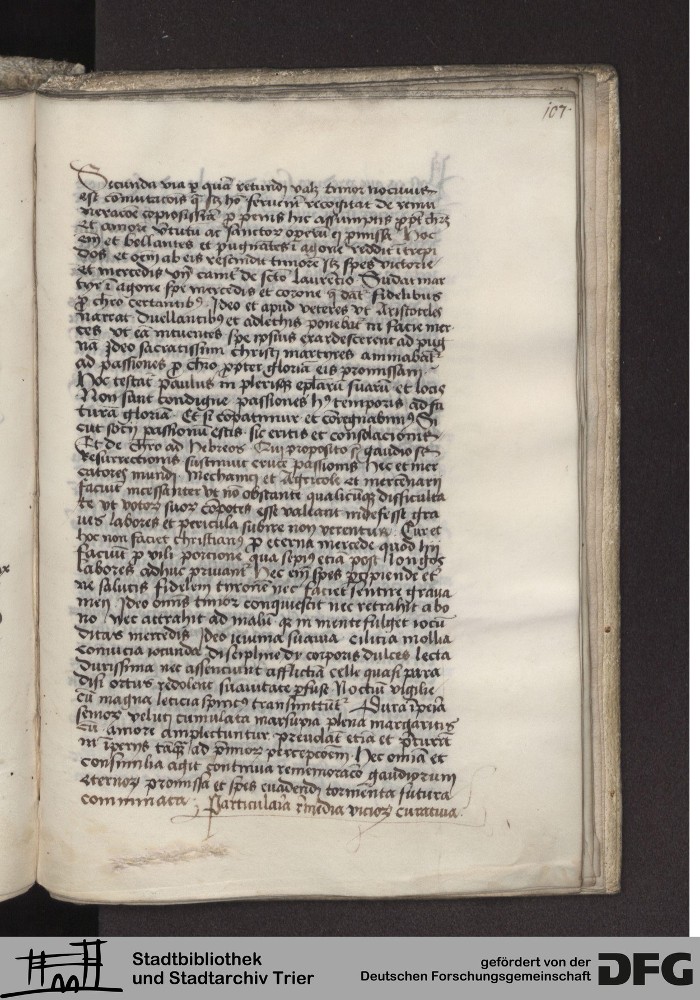 107
Secunda via p quā retundi valz timor nocivus
est cōmutacois q̄ scz hō fervenī recogitat de remu
neracōe copiosissīa p penis hic assumptis ppt chrz
et amore v̄tutu ac sanctor operū ei pmissa Hoc
em̄ et bellantes et pugnātes ī agone reddit ītrepi
dos et oēm ab eis rescindit timorē Itz spes victorie
et mercedis vn̄ canit de scto laurēcio Sudat mar
tyr ī agone spe mercedis et corone q̄ dat fidelibus
p chro certantibꝰ Ideo et apud veteres vt Aristoteles
narrat duellantibꝰ et adlethis ponebat in facie mer
ces vt eā intuentes spe ipsius exardescerent ad pug
nā Ideo sacratissimi christi martyres animabāt
ad passiones p chro ppter gloriā eis promissam
Hoc testat paulus in plerisqz eplarū suarū et locis
Non sunt condigne passiones hꝰ temporis ad fu
turā gloriā Et si cōpatimur et cōregnabimꝰ Si
cut socii passionū estis sic eritis et consolacionis
Et de chro ad hebreos Qui proposito sᵢ gaudio se
Resurrectionis sustinuit crucē passionis Hec et mer
catores mundi Mechanici et Agricole et mercenarii
faciūt incessanter vt nō obstante qualicūqz difficulta
te vt votorꝝ suorꝝ cōpotes esse valeant indefesse gra
ves labores et pericula subire non verentur Cur et
hoc non faciet christianꝰ p eterna mercede quod hii
faciūt p vili porcione qua sepiꝰ etiā post longos
labores adhuc privant Hec em̄ spes pcipiende et
ne salutis fidelem tironē nec faciet sentire grava
men Ideo omis timor conquiescit nec retrahit a bo
no nec attrahit ad malū qz in mente fulget iocū
ditas mercedis Ideo ieiunia suavia cilicia mollia
convicia iocunda discipline dr corporis dulces lecta
durissima nec assenciunt afflictiā celle quasi para
disi ortus redolent suavitate pfuse Noctiū vigilie
cū magna leticia spiritꝰ transmittūt Dura īpeia
senior veluti cumulata marsupia plena margaritis
cū amore amplectuntur prevolāt etiā et pcurrūt
in īperiis tāqz ad pmior percepcoēm Hec omīa et
consimilia agit continua rememoracō gaudiorum
eternorꝝ promissa et spes evadendi tormenta futura
comminata Particularia remedia viciorꝝ curativa
Stadtbibliothek
und Stadtarchiv Trier
gefördert von der
Deutschen Forschungsgemeinschaft
DFG